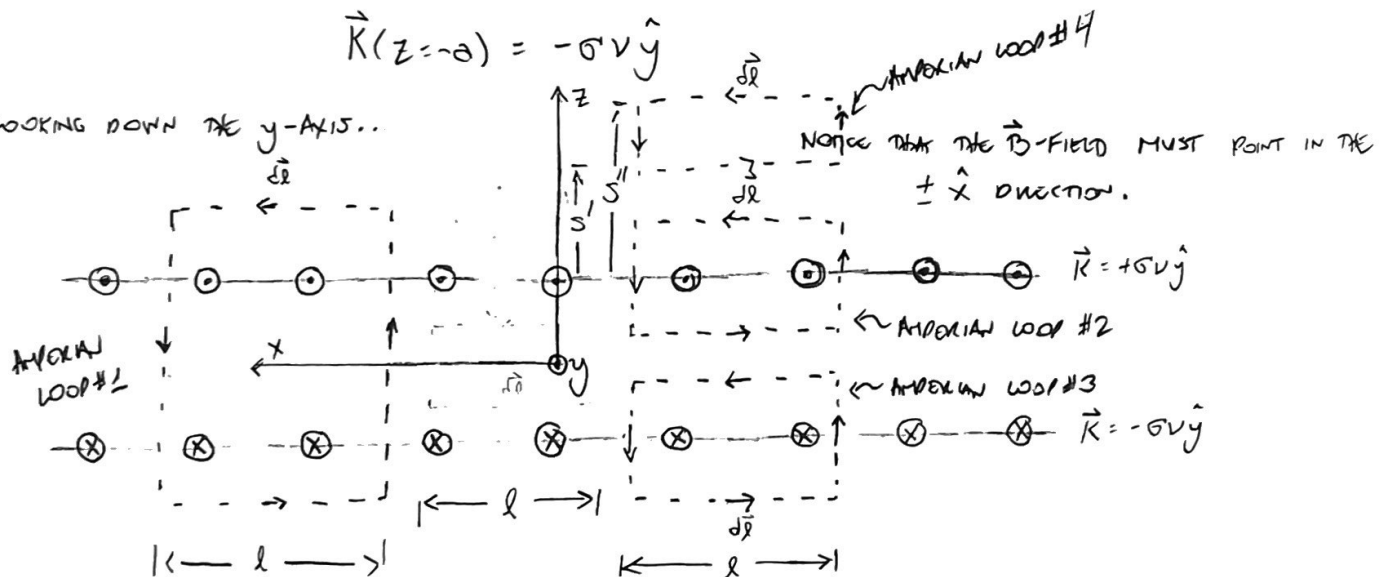 K⃗(z=-a) = -σv ŷ
AMPERIAN LOOP #4
LOOKING DOWN THE y-AXIS...
NOTICE THAT THE B⃗-FIELD MUST POINT IN THE
± x̂ DIRECTION.
dl⃗
dl⃗
z
s'
s''
dl⃗
K⃗ = +σv ŷ
AMPERIAN LOOP #2
AMPERIAN
LOOP #1
x
y
dl⃗
AMPERIAN LOOP #3
K⃗ = -σv ŷ
l
dl⃗
l
l